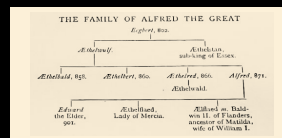 THE FAMILY OF ALFRED THE GREAT
Egbert, 802.
Æthelwulf. Æthelstan,
sub-king of Essex.
Æthelbald, 858. Æthelbert, 860. Æthelred, 866. Alfred, 871.
Æthelwald.
Edward Æthelflæd, Ælfthryth m. Bald-
the Elder, Lady of Mercia. win II. of Flanders,
901. ancestor of Matilda,
wife of William I.